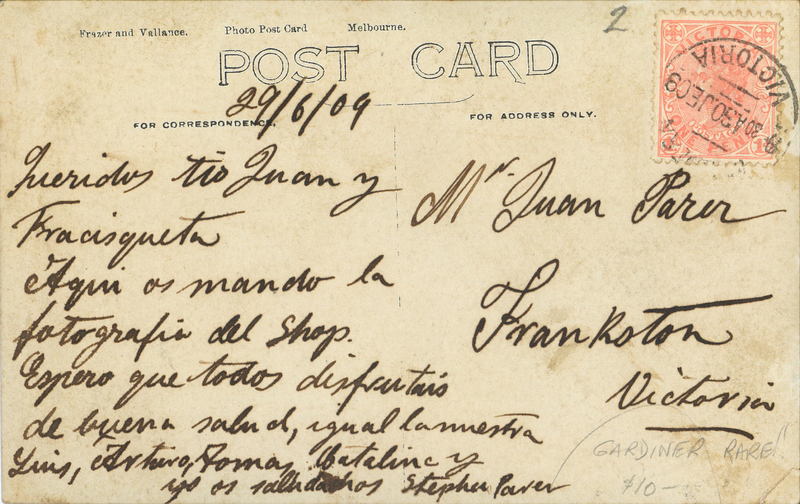 2
Frazer and Vallance. Photo Post Card Melbourne.
POST CARD
29/6/09
FOR CORRESPONDENCE.
FOR ADDRESS ONLY.
VICTORIA
VICTORIA
Queridos tio Juan y
Fracisqueta
Aqui os mando la
fotografia del Shop.
Espero que todos disfrutais
de buena salud, igual la nuestra
Luis, Arturo, Tomas, Catalina y
yo os saludamos Stephen Parer
Mr. Juan Parer
Frankston
Victoria
GARDINER RARE!!
$10-